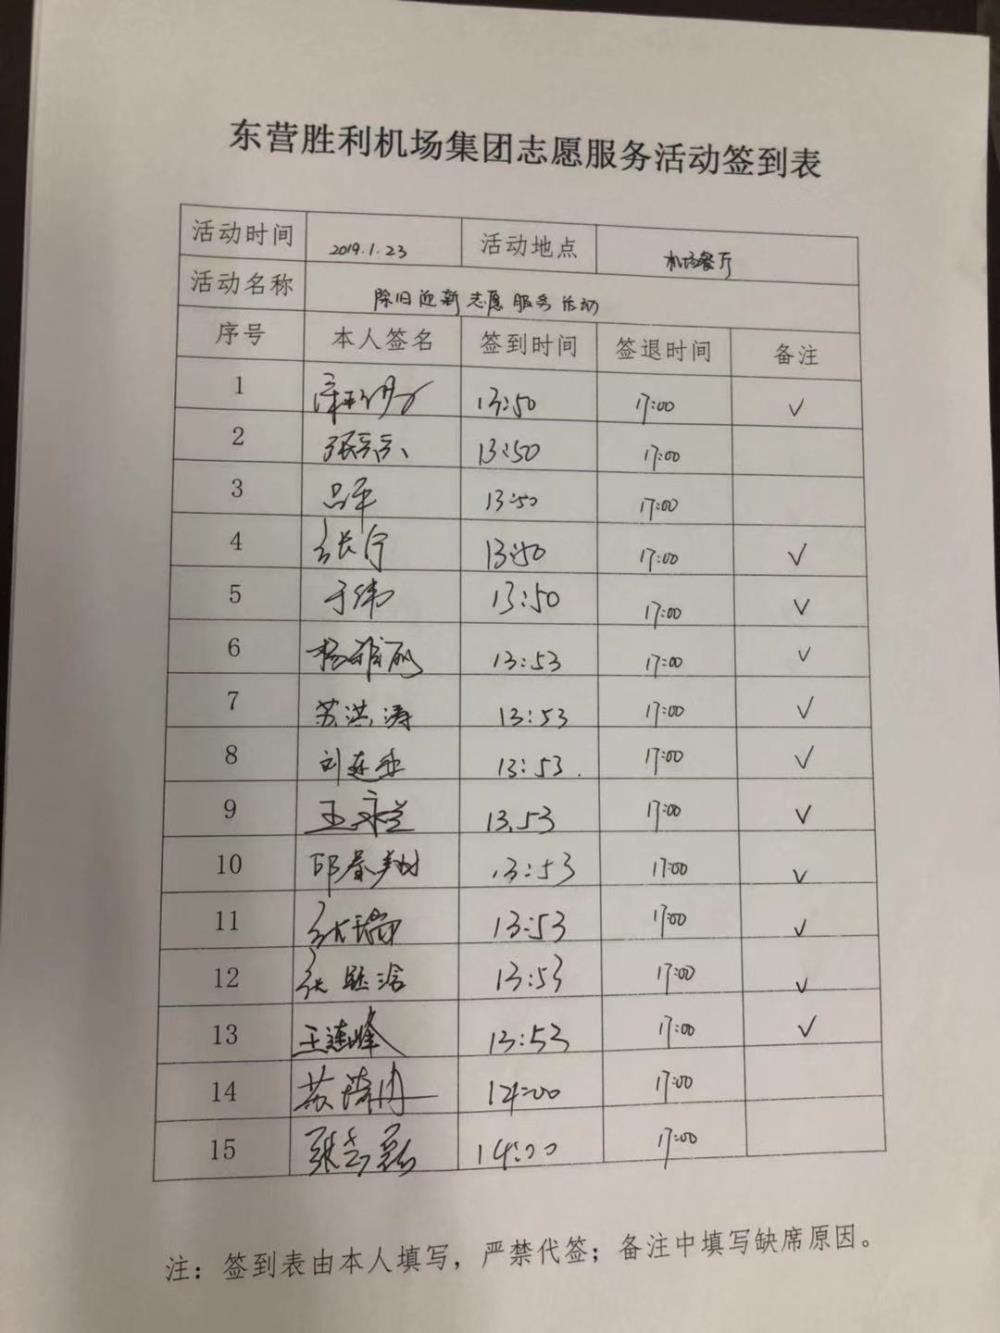 东营胜利机场集团志愿服务活动签到表
活动时间 2019.1.23 活动地点 机场餐厅
活动名称 除旧迎新志愿服务活动
序号 本人签名 签到时间 签退时间 备注
1 13:50 17:00 √
2 13:50 17:00
3 吕军 13:50 17:00
4 张宁 13:50 17:00 √
5 于伟 13:50 17:00 √
6 杨 13:53 17:00 √
7 苏洪涛 13:53 17:00 √
8 刘连 13:53. 17:00 √
9 王 13.53 17:00 √
10 邱春翔 13:53 17:00 √
11 张瑞 13:53 17:00 √
12 张 浩 13:53 17:00 √
13 王连峰 13:53 17:00 √
14 苏 14:00 17:00
15 张志磊 14:00 17:00
注：签到表由本人填写，严禁代签；备注中填写缺席原因。